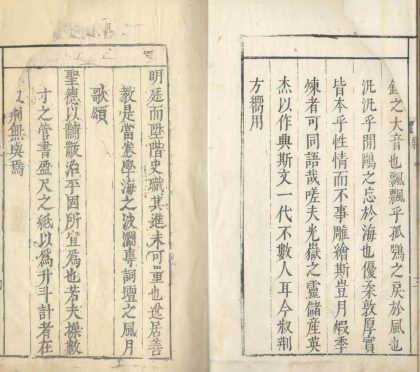 之大音也飄飄乎孤鶚之戾於風也
汎汎乎閒鷗之忘於海也優柔敦厚實
皆本乎性情而不事雕繪斯豈月煆季
煉者可同語哉嗟夫光嶽之靈儲産英
杰以作典斯文一代不數人耳今
方嚮用
明廷而歷階史職其進未可量也逸居善
教定當卷學海之波瀾專詞壇之風月
歌頌
聖德以黼黻治平固所宜爲也若夫操數
寸之管書盈尺之紙以爲升斗計者在
無與焉